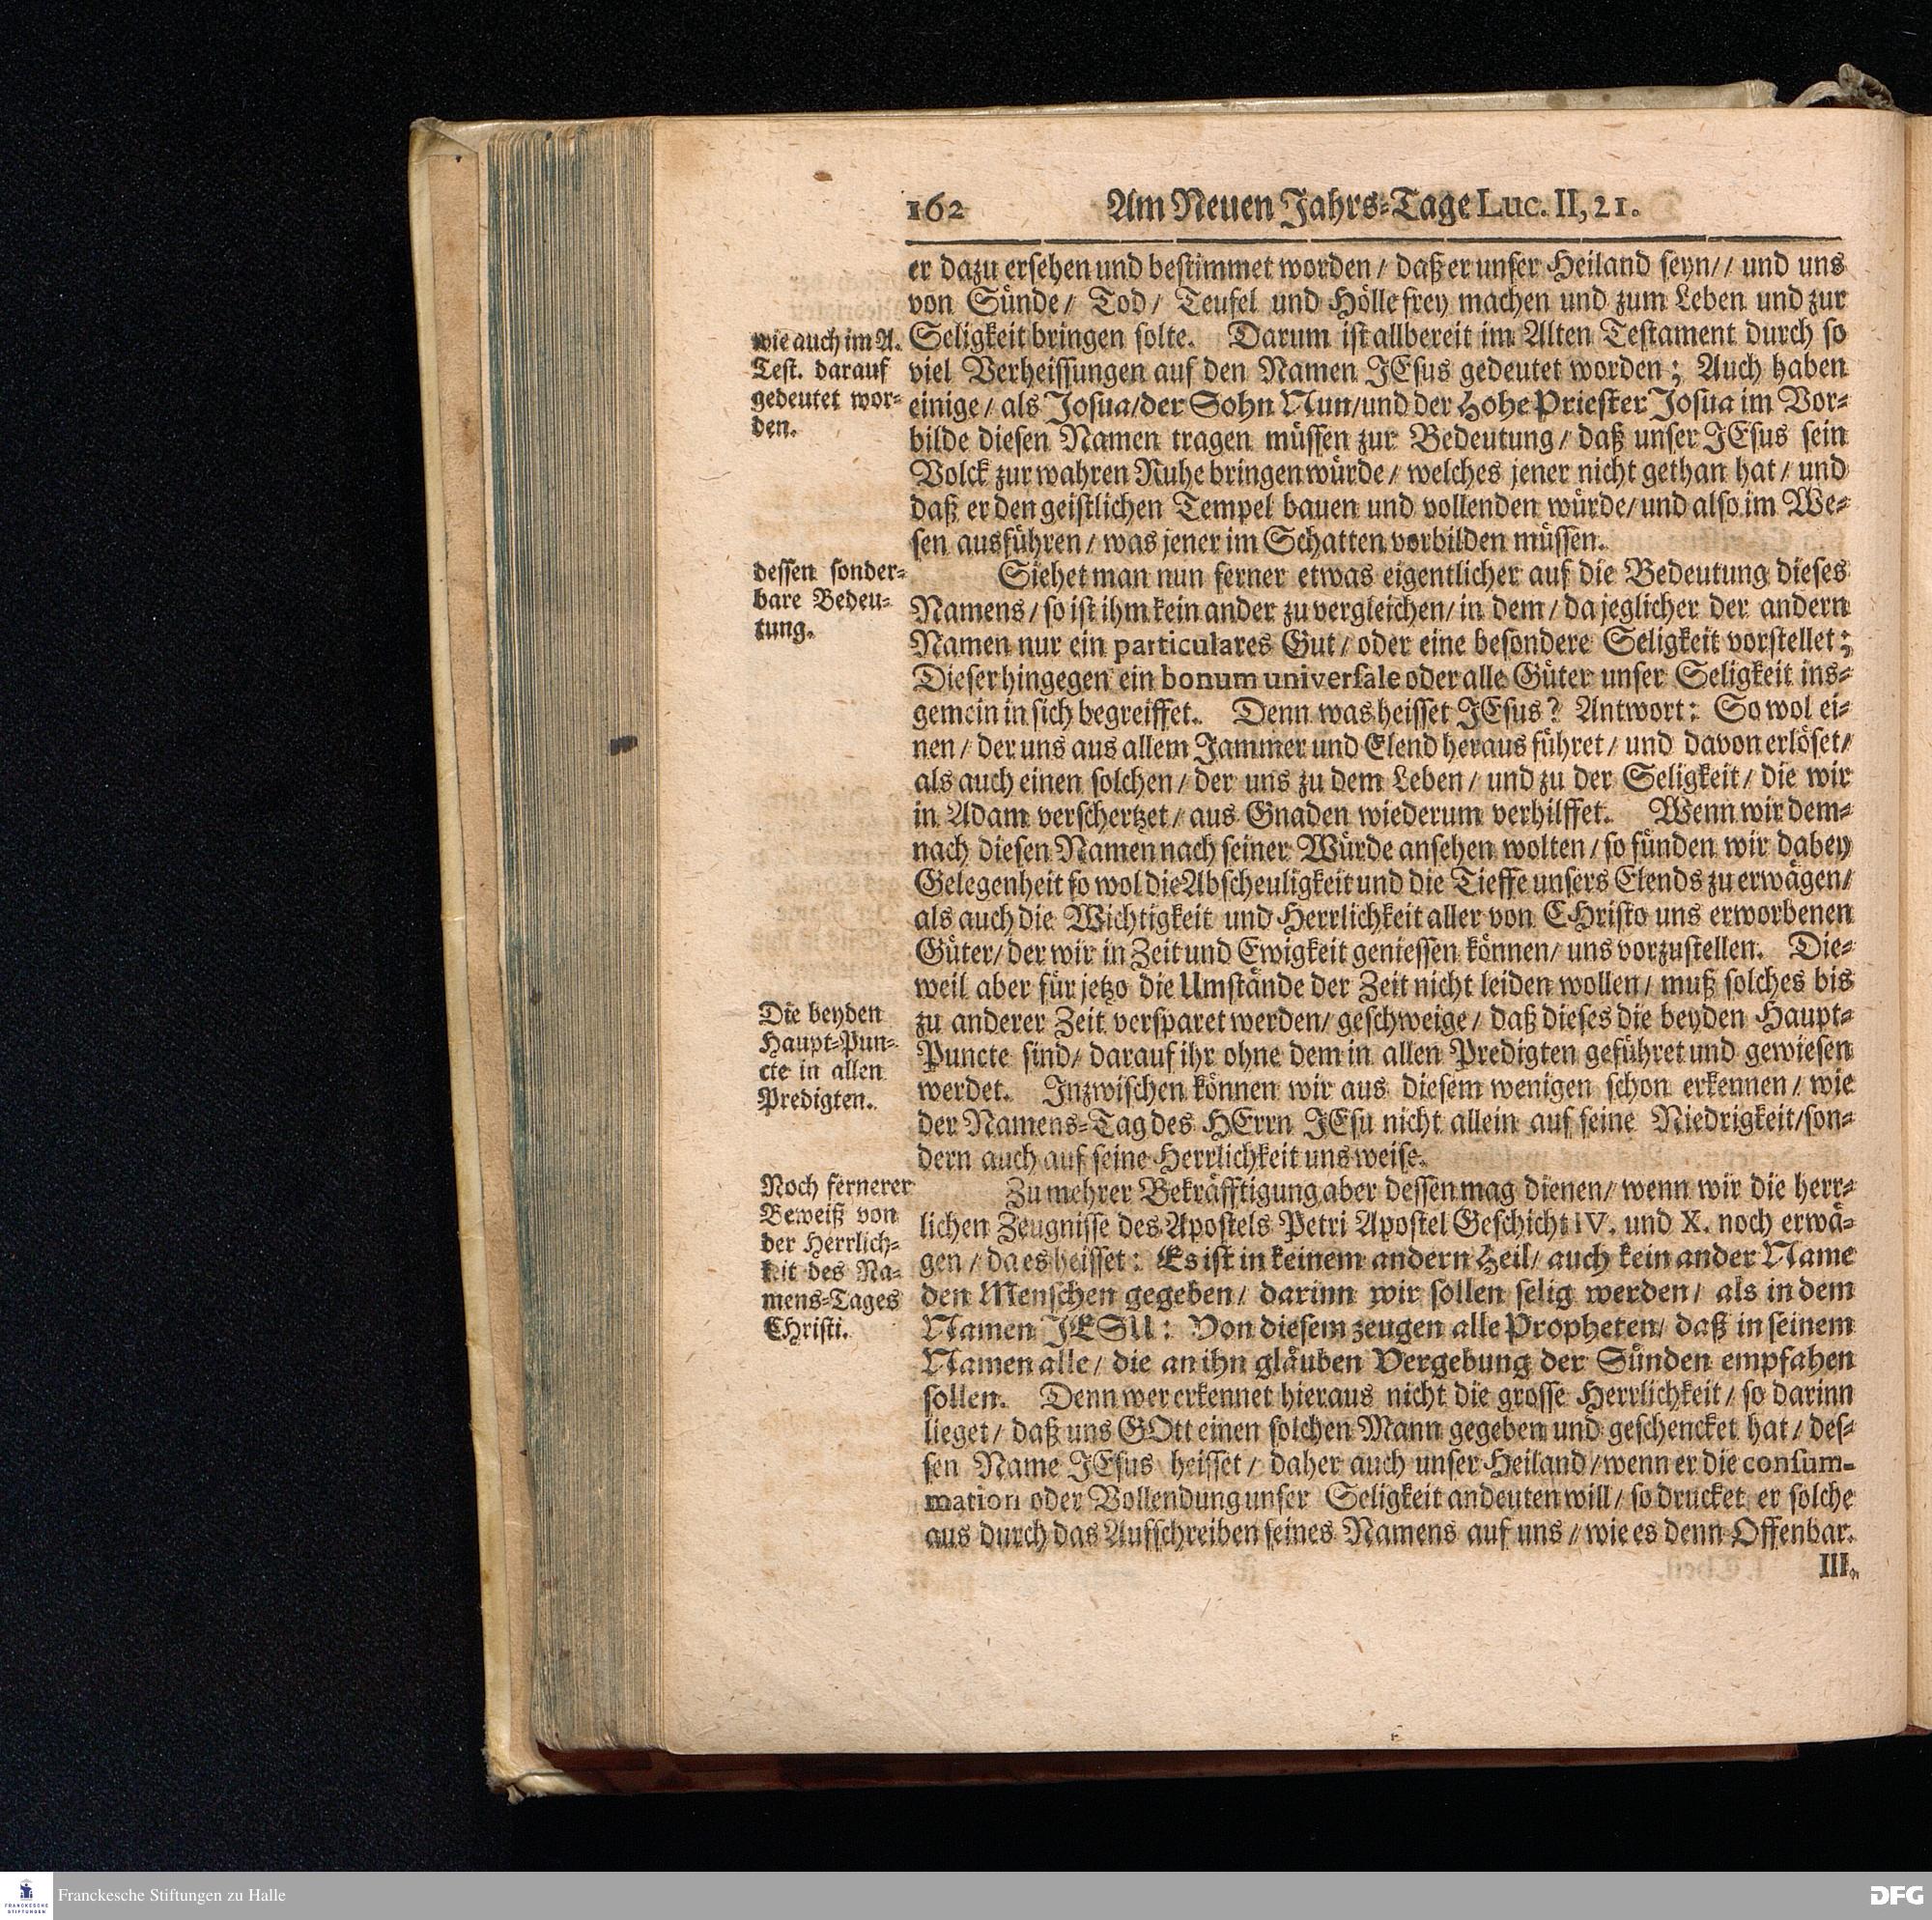 162 Am Neuen Jahrs-Tage Luc. II, 21.
er dazu ersehen und bestimmet worden / daß er unser Heiland seyn / / und uns
von Sünde / Tod / Teufel und Hölle frey machen und zum Leben und zur
Seligkeit bringen solte. Darum ist allbereit im Alten Testament durch so
viel Verheissungen auf den Namen JEsus gedeutet worden; Auch haben
einige / als Josua / der Sohn Nun / und der Hohe Priester Josua im Vor-
bilde diesen Namen tragen müssen zur Bedeutung / daß unser JEsus sein
Volck zur wahren Ruhe bringen würde / welches jener nicht gethan hat / und
daß er den geistlichen Tempel bauen und vollenden würde / und also im We-
sen ausführen / was jener im Schatten vorbilden müssen.
wie auch im A.
Test. darauf
gedeutet wor-
den.
Siehet man nun ferner etwas eigentlicher auf die Bedeutung dieses
Namens / so ist ihm kein ander zu vergleichen / in dem / da jeglicher der andern
Namen nur ein particulares Gut / oder eine besondere Seligkeit vorstellet;
Dieser hingegen ein bonum universale oder alle Güter unser Seligkeit ins-
gemein in sich begreiffet. Denn was heisset JEsus? Antwort: So wol ei-
nen / der uns aus allem Jammer und Elend heraus führet / und davon erlöset /
als auch einen solchen / der uns zu dem Leben / und zu der Seligkeit / die wir
in Adam verschertzet / aus Gnaden wiederum verhilffet. Wenn wir dem-
nach diesen Namen nach seiner Würde ansehen wolten / so fünden wir dabey
Gelegenheit so wol die Abscheuligkeit und die Tieffe unsers Elends zu erwägen /
als auch die Wichtigkeit und Herrlichkeit aller von CHristo uns erworbenen
Güter / der wir in Zeit und Ewigkeit geniessen können / uns vorzustellen. Die-
weil aber für jetzo die Umstände der Zeit nicht leiden wollen / muß solches bis
zu anderer Zeit versparet werden / geschweige / daß dieses die beyden Haupt-
Puncte sind / darauf ihr ohne dem in allen Predigten geführet und gewiesen
werdet. Inzwischen können wir aus diesem wenigen schon erkennen / wie
der Namens-Tag des HErrn JEsu nicht allein auf seine Niedrigkeit / son-
dern auch auf seine Herrlichkeit uns weise.
dessen sonder-
bare Bedeu-
tung.
Die beyden
Haupt-Pun-
cte in allen
Predigten.
Zu mehrer Bekräfftigung aber dessen mag dienen / wenn wir die herr-
lichen Zeugnisse des Apostels Petri Apostel Geschicht IV. und X. noch erwä-
gen / da es heisset: Es ist in keinem andern Heil / auch kein ander Name
den Menschen gegeben / darinn wir sollen selig werden / als in dem
Namen JESU: Von diesem zeugen alle Propheten / daß in seinem
Namen alle / die an ihn gläuben Vergebung der Sünden empfahen
sollen. Denn wer erkennet hieraus nicht die grosse Herrlichkeit / so darinn
lieget / daß uns GOtt einen solchen Mann gegeben und geschencket hat / des-
sen Name JEsus heisset / daher auch unser Heiland / wenn er die consum-
mation oder Vollendung unser Seligkeit andeuten will / so drucket er solche
aus durch das Aufschreiben seines Namens auf uns / wie es denn Offenbar.
III.
Noch fernerer
Beweiß von
der Herrlich-
keit des Na-
mens-Tages
CHristi.
Franckesche Stiftungen zu Halle
FRANCKESCHE
STIFTUNGEN
DFG